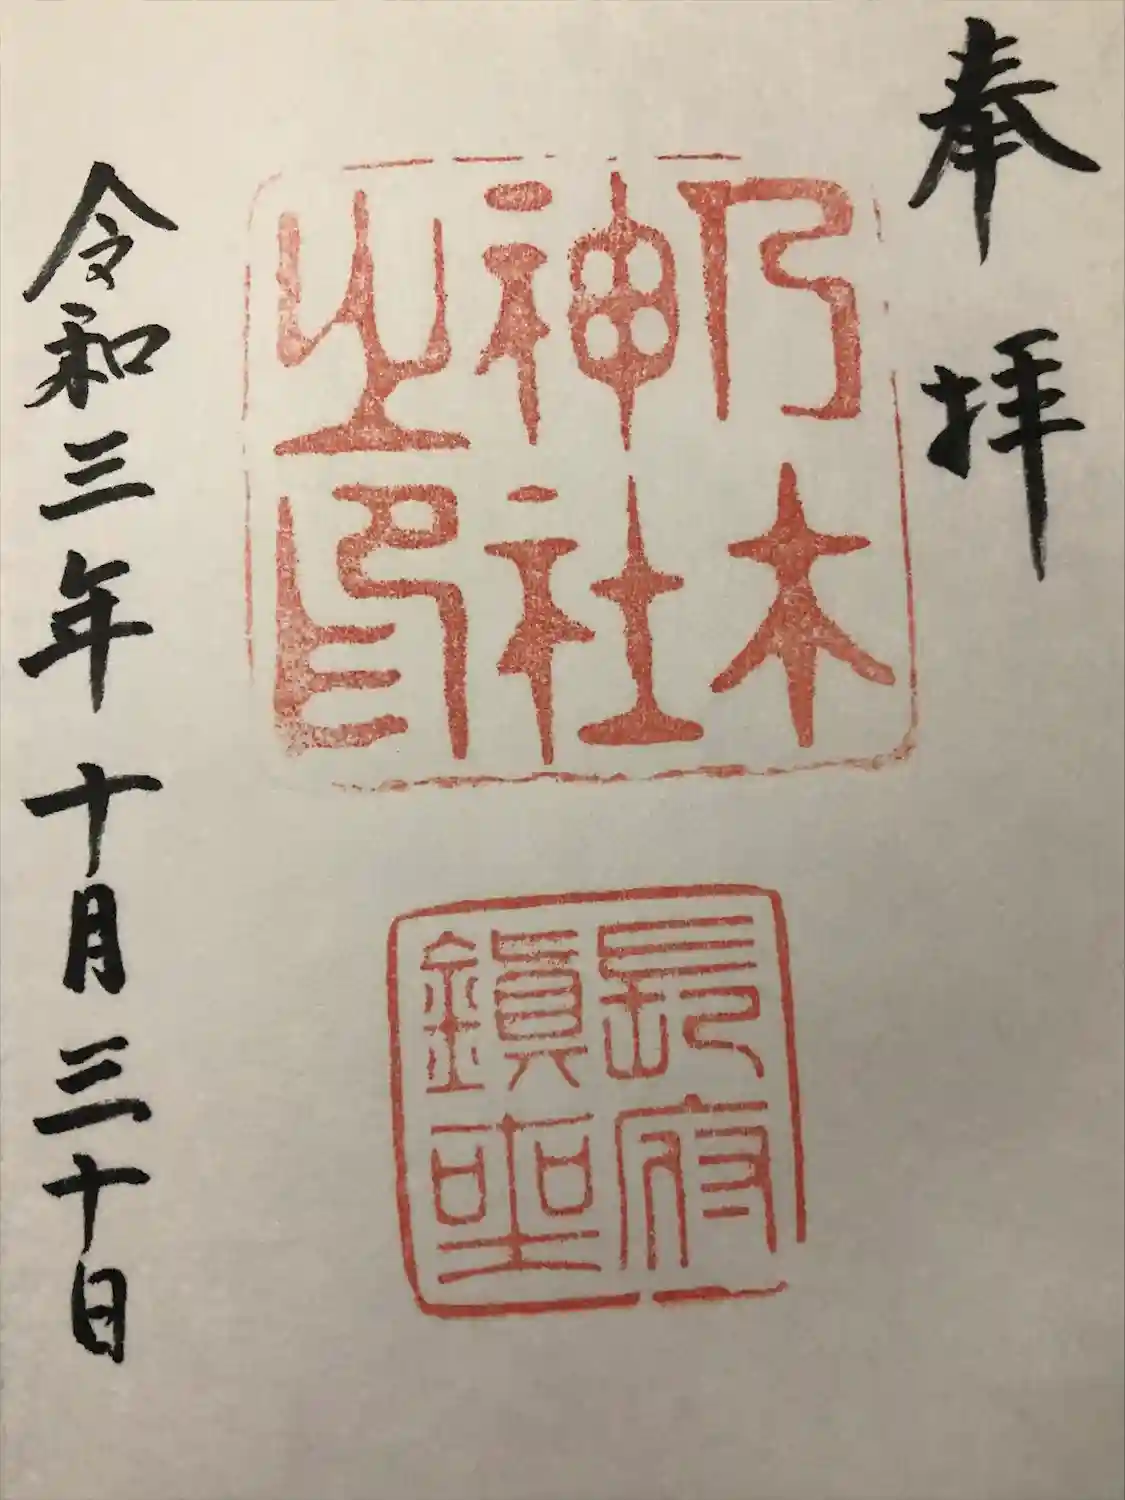 奉拝
乃木
神社
之印
長府
鎮
令和三年十月三十日